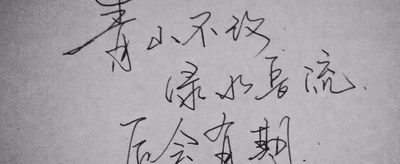 青山不改
绿水长流.
后会有期